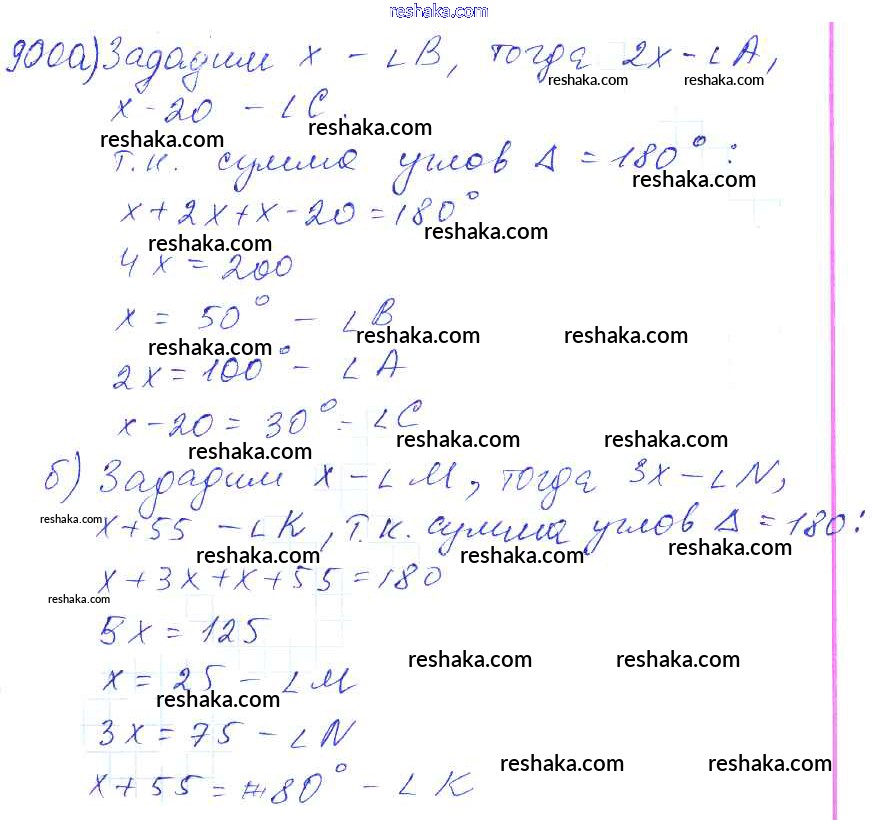 reshaka.com
900а) Зададим x - ∠B, тогда 2x - ∠A,
reshaka.com reshaka.com
x - 20 - ∠C.
reshaka.com reshaka.com
т.к. сумма углов Δ = 180° :
reshaka.com
x + 2x + x - 20 = 180°
reshaka.com reshaka.com
4x = 200
x = 50° - ∠B
reshaka.com reshaka.com reshaka.com
2x = 100° - ∠A
x - 20 = 30° - ∠C
reshaka.com reshaka.com reshaka.com
б) Зададим x - ∠M, тогда 3x - ∠N,
reshaka.com
x + 55 - ∠K, т.к. сумма углов Δ = 180:
reshaka.com reshaka.com reshaka.com
x + 3x + x + 55 = 180
reshaka.com
5x = 125
reshaka.com reshaka.com
x = 25 - ∠M
reshaka.com
3x = 75 - ∠N
reshaka.com reshaka.com
x + 55 = 80° - ∠K